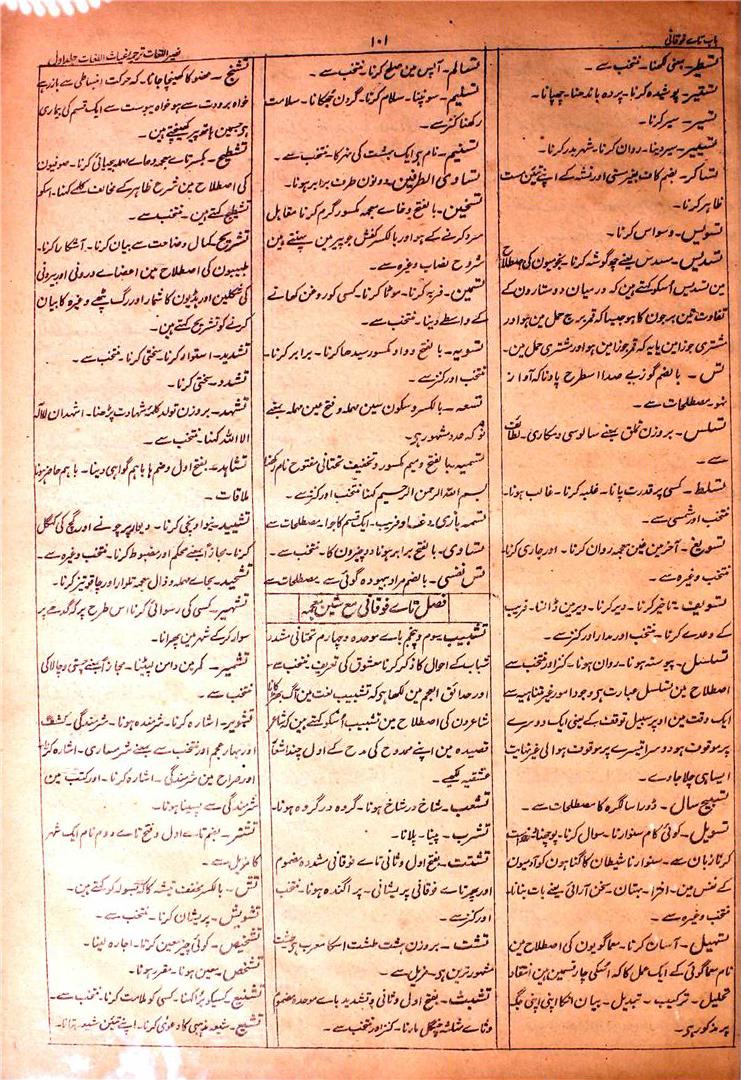 باب تاے فوقانی
۱۰۱
نصیر اللغات ترجمہ غیاث اللغات جلد اول
تسطیر۔ بمعنی لکھنا۔ منتخب سے۔
تستیر۔ پوشیدہ کرنا۔ پردہ باندھنا۔ چھپانا۔
تسیر۔ سیر کرنا۔
تسییر۔ سیر دینا۔ روان کرنا۔ شہر بدر کرنا۔
تساکر۔ بضم کاف بغیر مستی اور نشہ کے اپنے تئین مست
ظاہر کرنا۔
تسویس۔ وسواس کرنا۔
تسدیس۔ مسدس یعنے چھ گوشہ کرنا۔ نجومیون کی اصطلاح
مین تسدیس اُسکو کہتے ہین کہ درمیان دو ستارون کے
تفاوت تین برجون کا ہو جیسا کہ قمر برج حمل مین ہو اور
مشتری جوزا مین یا یہ کہ قمر جوزا مین ہو اور مشتری حمل مین۔
تس۔ بالضم گوز بے صدا اسطرح پادنا کہ آواز
نہو۔ مصطلحات سے۔
تسلس۔ بروزن تملق یعنے سالوسی و مکاری۔ لطائف
سے۔
تسلط۔ کسی پر قدرت پانا۔ غلبہ کرنا۔ غالب ہونا۔
منتخب اور شمسی سے۔
تسویغ۔ آخر مین غین معجمہ روان کرنا۔ اور جاری کرنا
منتخب وغیرہ سے۔
تسویف۔ تاخیر کرنا۔ دیر کرنا۔ دیر مین ڈالنا۔ فریب
کے وعدے کرنا۔ منتخب اور مدار اور کنز سے۔
تسلسل۔ پیوستہ ہونا۔ روان ہونا۔ کنز اور منتخب سے
اصطلاح مین تسلسل عبارت ہی وجود امور غیر متناہیہ سے
ایک وقت مین اوپر سبیل توقف کے یعنی ایک دوسرے
پر موقوف ہو دوسرا تیسرے پر موقوف ہو الی غیر نہایت
ایسا ہی چلا جاوے۔
تسبیح سال۔ ڈورا سالگرہ کا مصطلحات سے۔
تسویل۔ کوئی کام سنوارنا۔ سوال کرنا۔ پوچھنا
کرنا زبان سے۔ سنوارنا شیطان کا گناہون کو آدمیون
کے نفس مین۔ افترا۔ بہتان۔ سخن آرائی یعنے بات بنانا۔
منتخب وغیرہ سے۔
تسہیل۔ آسان کرنا۔ معماگویون کی اصطلاح مین
نام معماگوئی کے ایک عمل کا کہ اُسکی چار قسمین ہین انتقاد
تحلیل۔ ترکیب۔ تبدیل۔ بیان انکا اپنی اپنی جگہ
پر مذکور ہی۔
تسالم۔ آپس مین صلح کرنا۔ منتخب سے۔
تسلیم۔ سونپنا۔ سلام کرنا۔ گردن جھکانا۔ سلامت
رکھنا کنز سے۔
تسنیم۔ نام ہی ایک بہشت کی نہر کا۔ منتخب سے۔
تساوی الطرفین۔ دونون طرف برابر ہونا۔
تسخین۔ بالفتح و خاے معجمہ کسور گرم کرنا مقابل
سرد کرنے کے ہو اور بالکسر کفش جو پیر مین پہنتے ہین
شروح نصاب وغیرہ سے۔
تسمین۔ فربہ کرنا۔ موٹا کرنا۔ کسی کو روغن کھانے
کے واسطے دینا۔ منتخب سے۔
تسویہ۔ بالفتح و واو کمسور سیدھا کرنا۔ برابر کرنا۔
منتخب اور کنز سے۔
تسعہ۔ بالکسر و سکون سین مہملہ و فتح عین مہملہ یعنے
نو کہ عدد مشہور ہی۔
تسمیہ۔ بالفتح و میم کمسور و تخفیف تحتانی مفتوح نام رکھنا
بسم اللہ الرحمن الرحیم کہنا منتخب اور کنز سے۔
تسمہ بازی۔ دغا و فریب۔ ایک قسم کا جوا۔ مصطلحات سے
تساوی۔ بالفتح برابر ہونا دو چیزون کا۔ منتخب سے۔
تس نفسی۔ بالضم مراد بیہودہ گوئی سے مصطلحات سے
فصل تاے فوقانی مع شین معجمہ
تشبیب سوم و پنجم باے موحدہ و چہارم تحتانی مشدد
شباب کے احوال کا ذکر کرنا معشوق کی تعریف منتخب سے
اور حدائق العجم مین لکھا ہو کہ تشبیب لغت مین آگ بھڑکانا
شاعرون کی اصطلاح مین تشبیب اُسکو کہتے ہین کہ شاعر
قصیدہ مین اپنے ممدوح کی مدح کے اول چند اشعار
عشقیہ لکھے۔
تشعب۔ شاخ در شاخ ہونا۔ گروہ در گروہ ہونا۔
تشرب۔ پینا۔ پلانا۔
تشتت۔ بفتح اول و ثانی تاے فوقانی مشددہ مضموم
اور پھر تاے فوقانی پریشانی۔ پراگندہ ہونا۔ منتخب
اور کنز سے۔
تشت۔ بروزن ہشت طشت اسکا معرب ہی
مشہور ترین ہی۔ مزیل سے۔
تشبث۔ بفتح اول و ثانی و تشدید باے موحدہ مضموم
و ثاے مثلثہ چنگل مارنا۔ کنز اور منتخب سے۔
تشنج۔ عضو کا کھینچا جانا۔ کہ حرکت انبساطی سے باز رہے
خواہ برودت سے ہو خواہ یبوست سے ایک قسم کی بیماری
ہی جسمین ہاتھ پیر کھینچتے ہین۔
تشطیح۔ یکسر تاے معجمہ و حاے مہملہ بیحیائی کرنا۔ صوفیون
کی اصطلاح مین شرع ظاہر کے مخالف کلمے کہنا۔ اسکو
تشطیح کہتے ہین۔ منتخب سے۔
تشریح۔ کمال وضاحت سے بیان کرنا۔ آشکارا کرنا۔
طبیبون کی اصطلاح مین اعضاے درونی اور بیرونی
کی شکلین اور ہڈیون کا شمار اور رگ پٹھے وغیرہ کا بیان
کرنے کو تشریح کہتے ہین۔
تشدید۔ استوار کرنا۔ سختی کرنا۔ منتخب سے۔
تشدد۔ سختی کرنا۔
تشہد۔ بروزن تولد کلمۂ شہادت پڑھنا۔ اشہد ان لا الہ
الا اللہ کہنا۔ منتخب سے۔
تشاہد۔ بفتح اول وضم ہا باہم گواہی دینا۔ باہم حاضر ہونا
ملاقات۔
تشیید۔ نیو اونچی کرنا۔ دیوار پر چونے اور گچ کی کہگل
کرنا۔ مجازاً یعنے محکم اور مضبوط کرنا۔ منتخب وغیرہ سے۔
تشحیذ۔ بحاے مہملہ و ذال معجمہ تلوار اور چاقو تیز کرنا۔
تشہیر۔ کسی کی رسوائی کرنا اس طرح پر کہ گدھے پر
سوار کرکے شہر مین پھرانا۔
تشمیر۔ کمر مین دامن لپیٹنا۔ مجازاً یعنے چستی و چالاکی
منتخب سے۔
تشویر۔ اشارہ کرنا۔ شرمندہ ہونا۔ شرمندگی۔ کشف
اور بہار عجم اور منتخب سے یعنے شرمساری۔ اشارہ کرنا
اور صراح مین شرمندگی۔ اشارہ کرنا۔ اور کتب مین
شرمندگی سے پسینا ہونا۔
تشتر۔ بضم تاے اول و فتح تاے دوم نام ایک شہر
کا مزیل سے۔
تش۔ بالکسر مخفف تیشہ کا کہ بسولہ کو کہتے ہین۔
تشویش۔ پریشان کرنا۔ منتخب سے۔
تشخیص۔ کوئی چیز معین کرنا۔ اجارہ لینا۔
تشخص۔ معین ہونا۔ مقرر ہونا۔
تشنیع۔ کسیکو بُرا کہنا۔ کسی کو ملامت کرنا۔ منتخب سے۔
تشیع۔ شیعہ مذہبی کا دعوٰی کرنا۔ اپنے تئین شیعہ بتانا۔